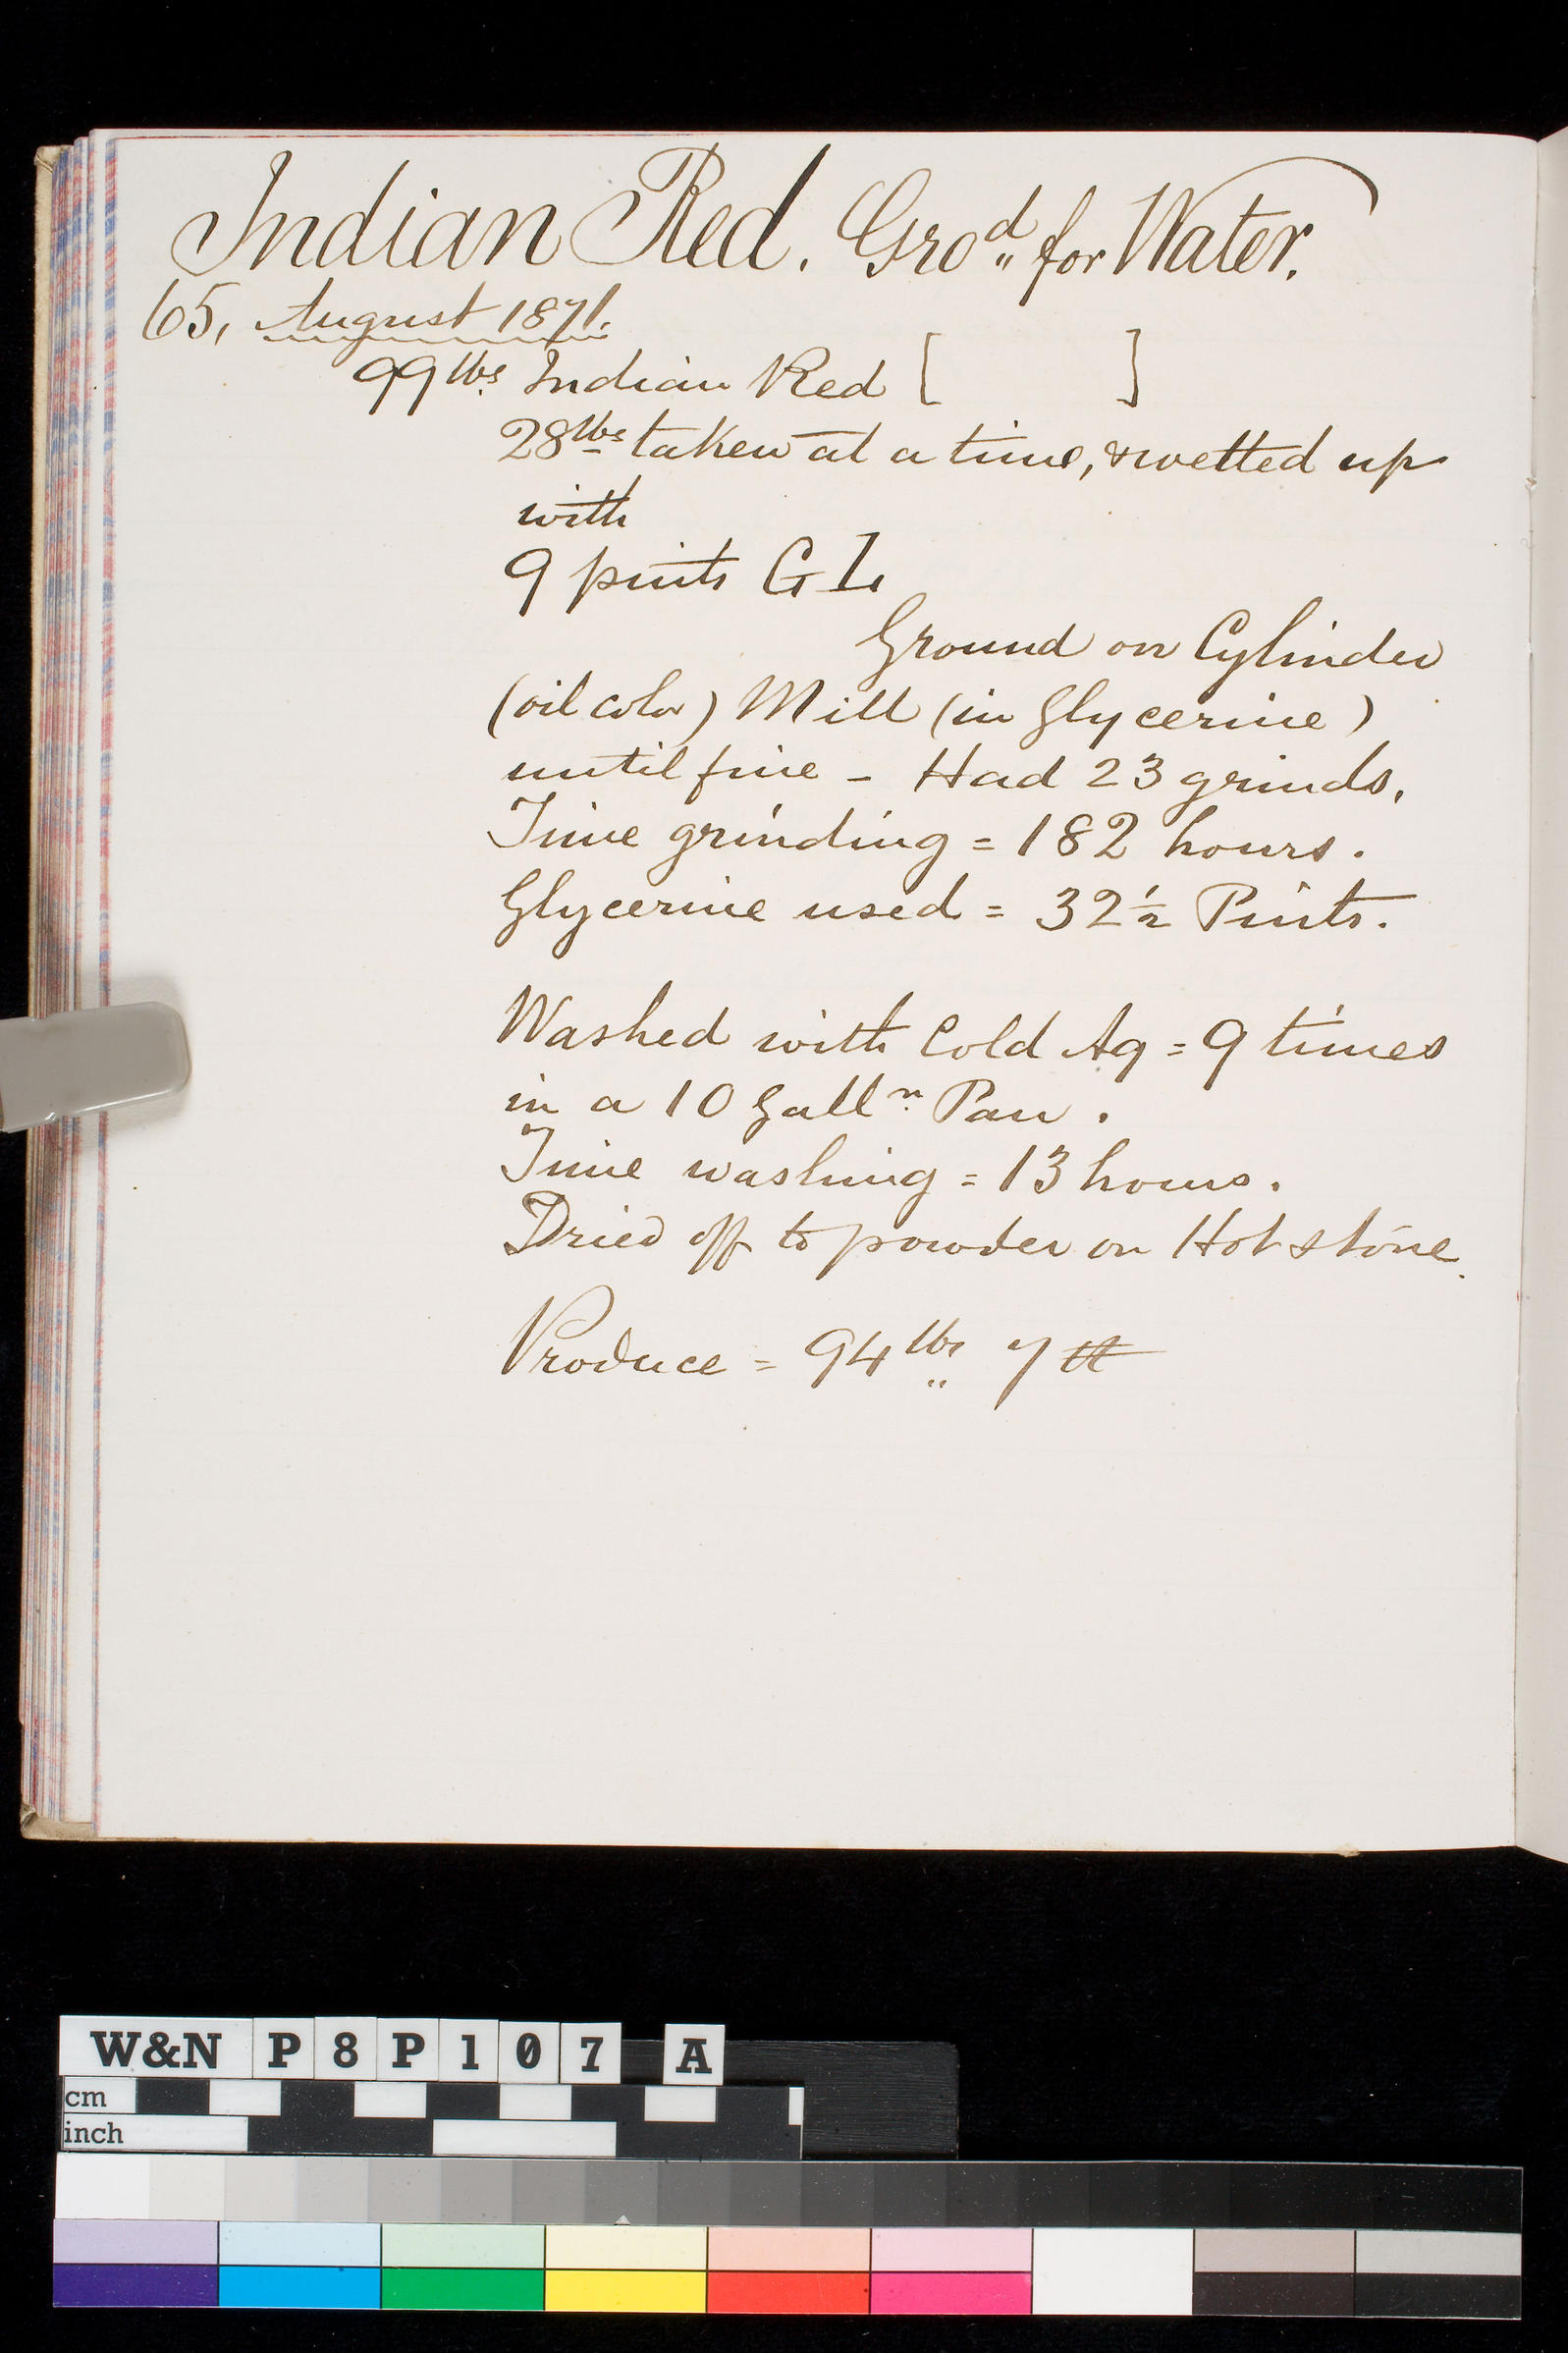 Indian Red. Gro^d for Water.
65, August 1871.
99 lbs Indian Red [ ]
28 lbs taken at a time, & wetted up
with
9 pints G L
Ground on Cylinder
(oil color) Mill (in Glycerine)
until fine - Had 23 grinds,
Time grinding = 182 hours.
Glycerine used = 32 1/2 Pints.
Washed with Cold Aq = 9 times
in a 10 Gall^n Pan.
Time washing = 13 hours.
Dried off to powder on Hot stone.
Produce = 94 lbs 7
W&N P8P107 A
cm
inch